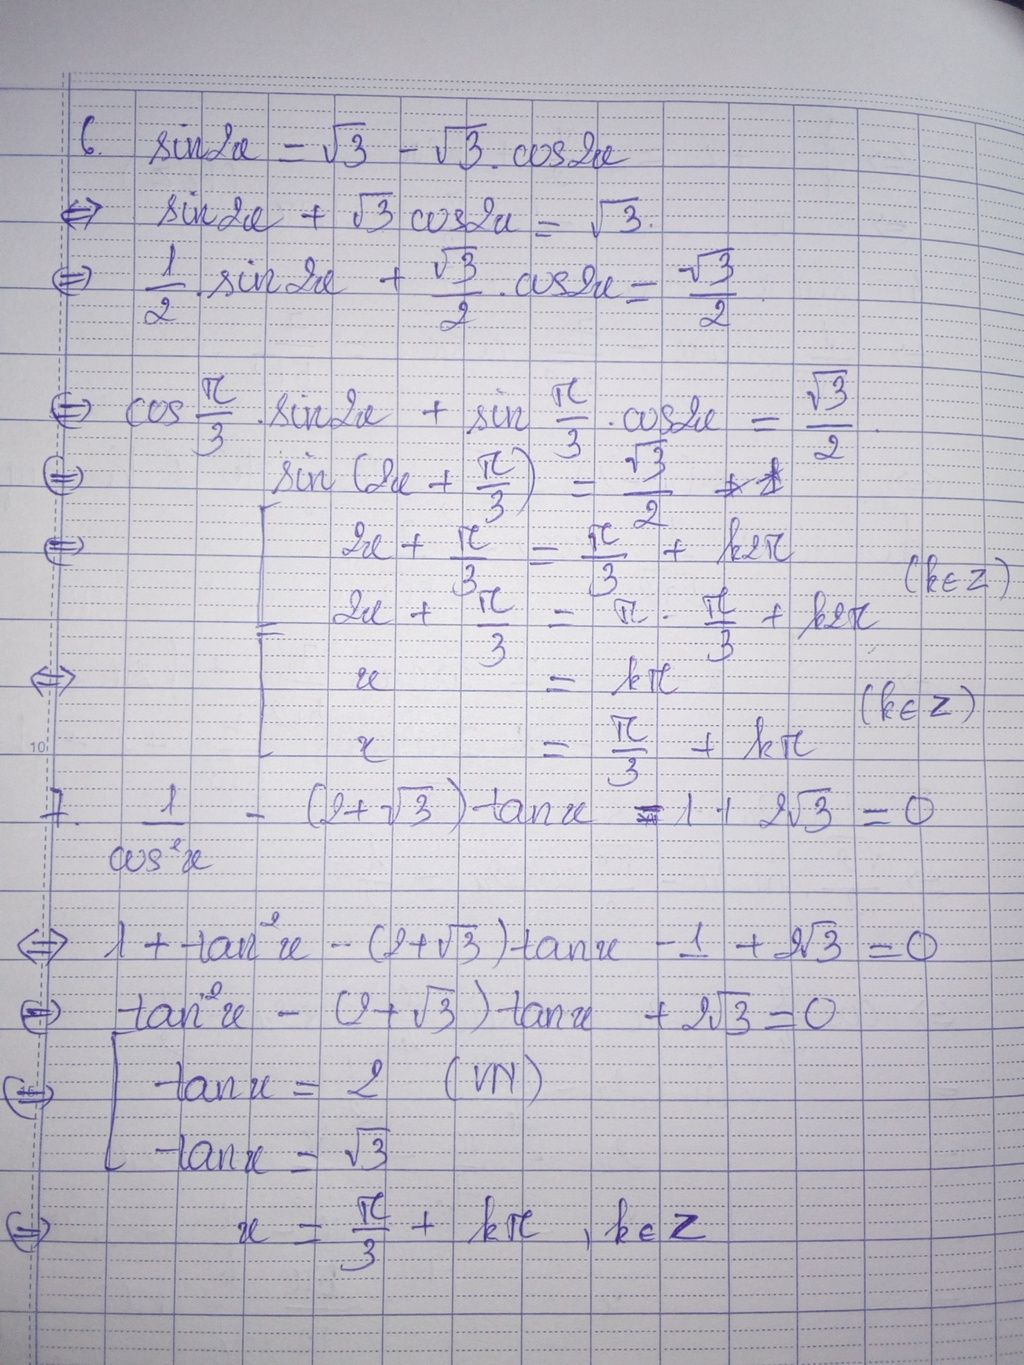 6. sin2x = √3 - √3. cos2x
⇔ sin2x + √3 cos2x = √3.
⇔ 1/2 . sin2x + √3/2 . cos2x = √3/2
⇔ cos π/3 . sin2x + sin π/3 . cos2x = √3/2 .
⇔ sin (2x + π/3) = √3/2
⇔ [ 2x + π/3 = π/3 + k2π
2x + π/3 = π - π/3 + k2π (k∈Z)
⇔ [ x = kπ
x = π/3 + kπ (k∈Z)
10
7. 1/cos²x - (2+√3)tanx - 1 + 2√3 = 0
⇔ 1 + tan²x - (2+√3)tanx - 1 + 2√3 = 0
⇔ tan²x - (2+√3)tanx + 2√3 = 0
15
⇔ [ tanx = 2 (VN)
tanx = √3
⇔ x = π/3 + kπ , k∈Z